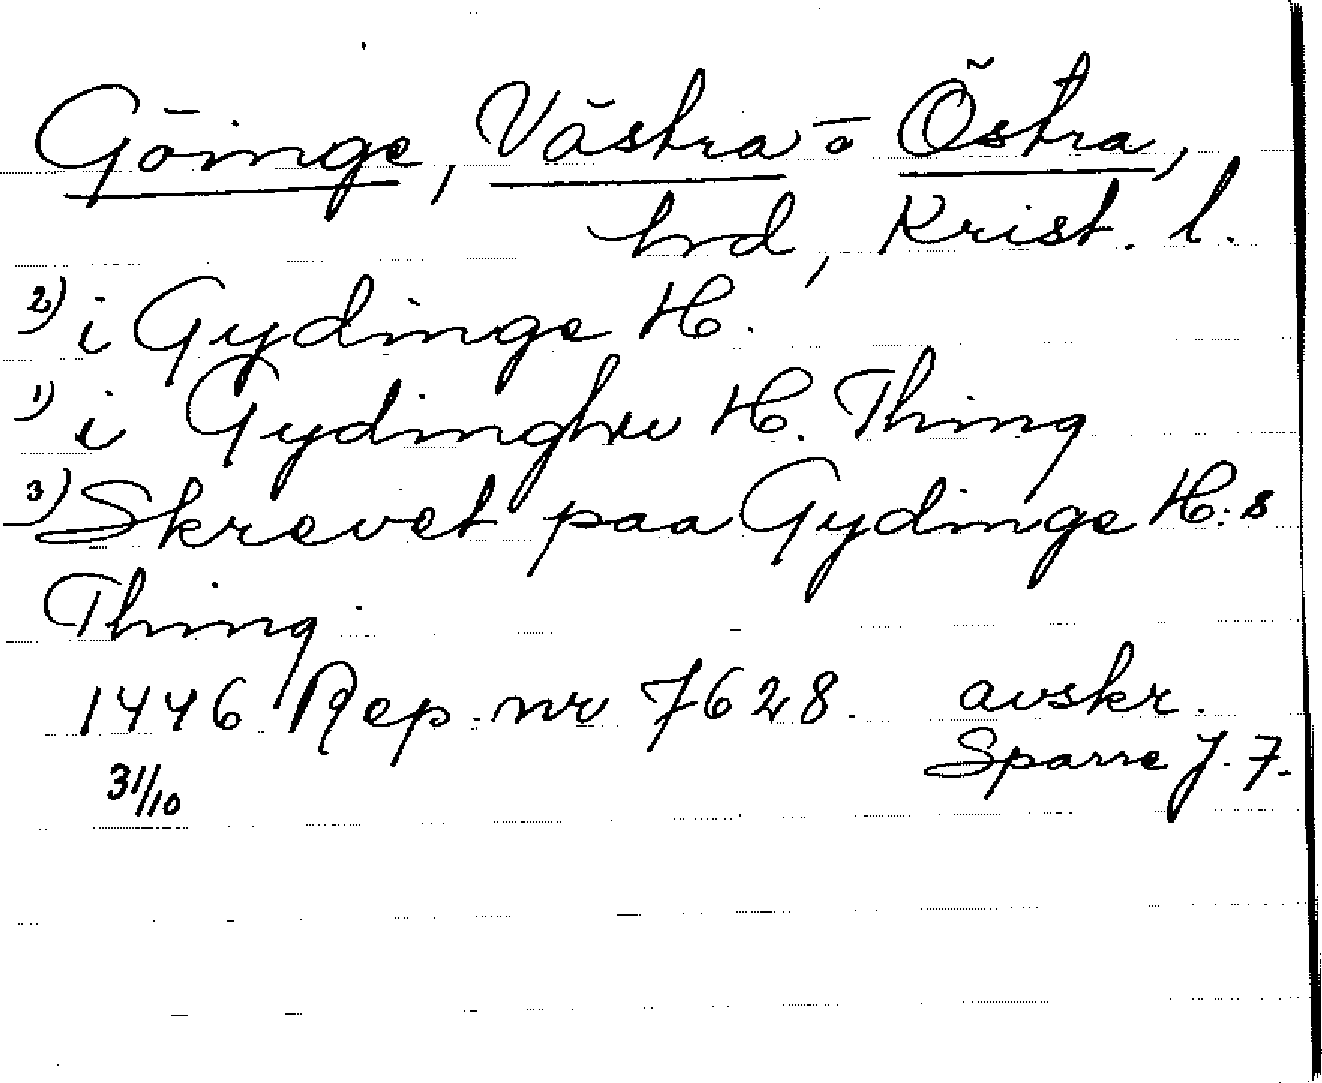 Göinge, Västra o Östra,
hrd, Krist. l.
2) i Gydinge H.
1) i Gydinghe H. Thing
3) Skrevet paa Gydinge H:s
Thing.
1446 Rep. nr 7628. avskr.
31/10 Sparre J. F.